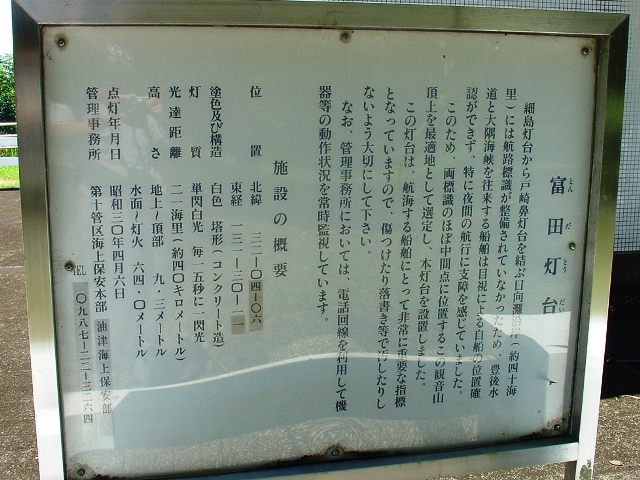 富田灯台
とんだとうだい
細島灯台から戸崎鼻灯台を結ぶ日向灘沿岸(約四十海
里)には航路標識が整備されていなかったため、豊後水
道と大隅海峡を往来する船舶は目視による自船の位置確
認ができず、特に夜間の航行に支障を感じていました。
このため、両標識のほぼ中間点に位置するこの観音山
頂上を最適地として選定し、本灯台を設置しました。
この灯台は、航海する船舶にとって非常に重要な指標
となっていますので、傷つけたり落書き等で汚したりし
ないよう大切にして下さい。
なお、管理事務所においては、電話回線を利用して機
器等の動作状況を常時監視しています。
施設の概要
位置 北緯 三二-〇四-〇六
東経 一三一-三〇-二一
塗色及び構造 白色 塔形(コンクリート造)
灯質 単閃白光 毎一五秒に一閃光
光達距離 二一海里(約四〇キロメートル)
高さ 地上~頂部 九・三メートル
水面~灯火 六四・〇メートル
点灯年月日 昭和三〇年四月六日
管理事務所 第十管区海上保安本部 油津海上保安部
TEL 〇九八七-二二-三二六四